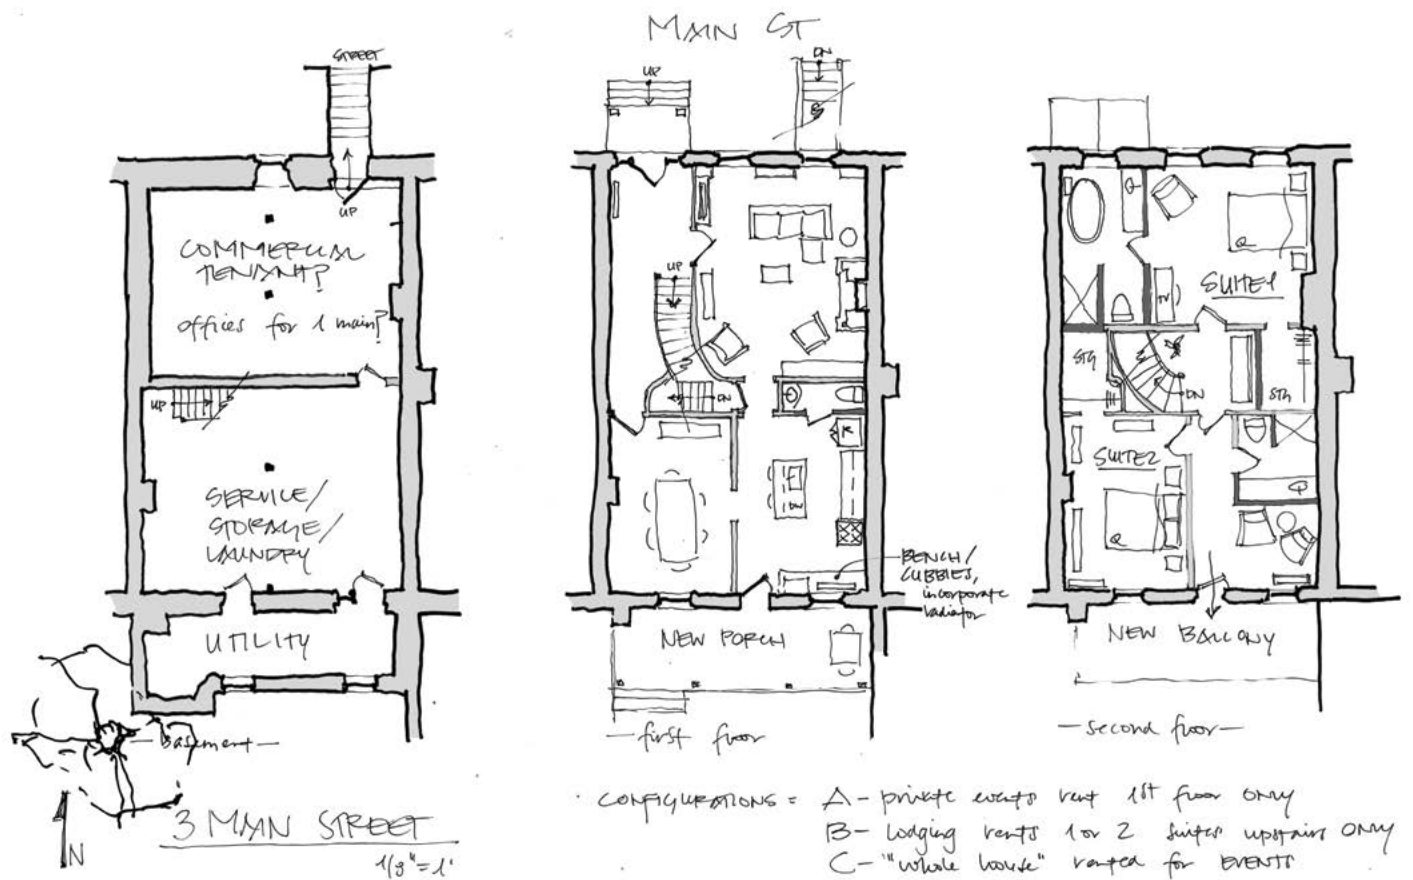 MAIN ST
STREET
UP
COMMERCIAL
TENANT?
offices for 1 main?
UP
SERVICE/
STORAGE/
LAUNDRY
UTILITY
-basement-
UP
DN
UP
DN
R
DW
BENCH/
CUBBIES,
incorporate
radiator
NEW PORCH
-first floor
SUITE 1
TV
STG
DN
STG
SUITE 2
NEW BALCONY
-second floor-
N
3 MAIN STREET
1/8"=1'
CONFIGURATIONS = A- private events rent 1st floor ONLY
B- lodging rents 1 or 2 suites upstairs ONLY
C- "whole house" rented for EVENTS